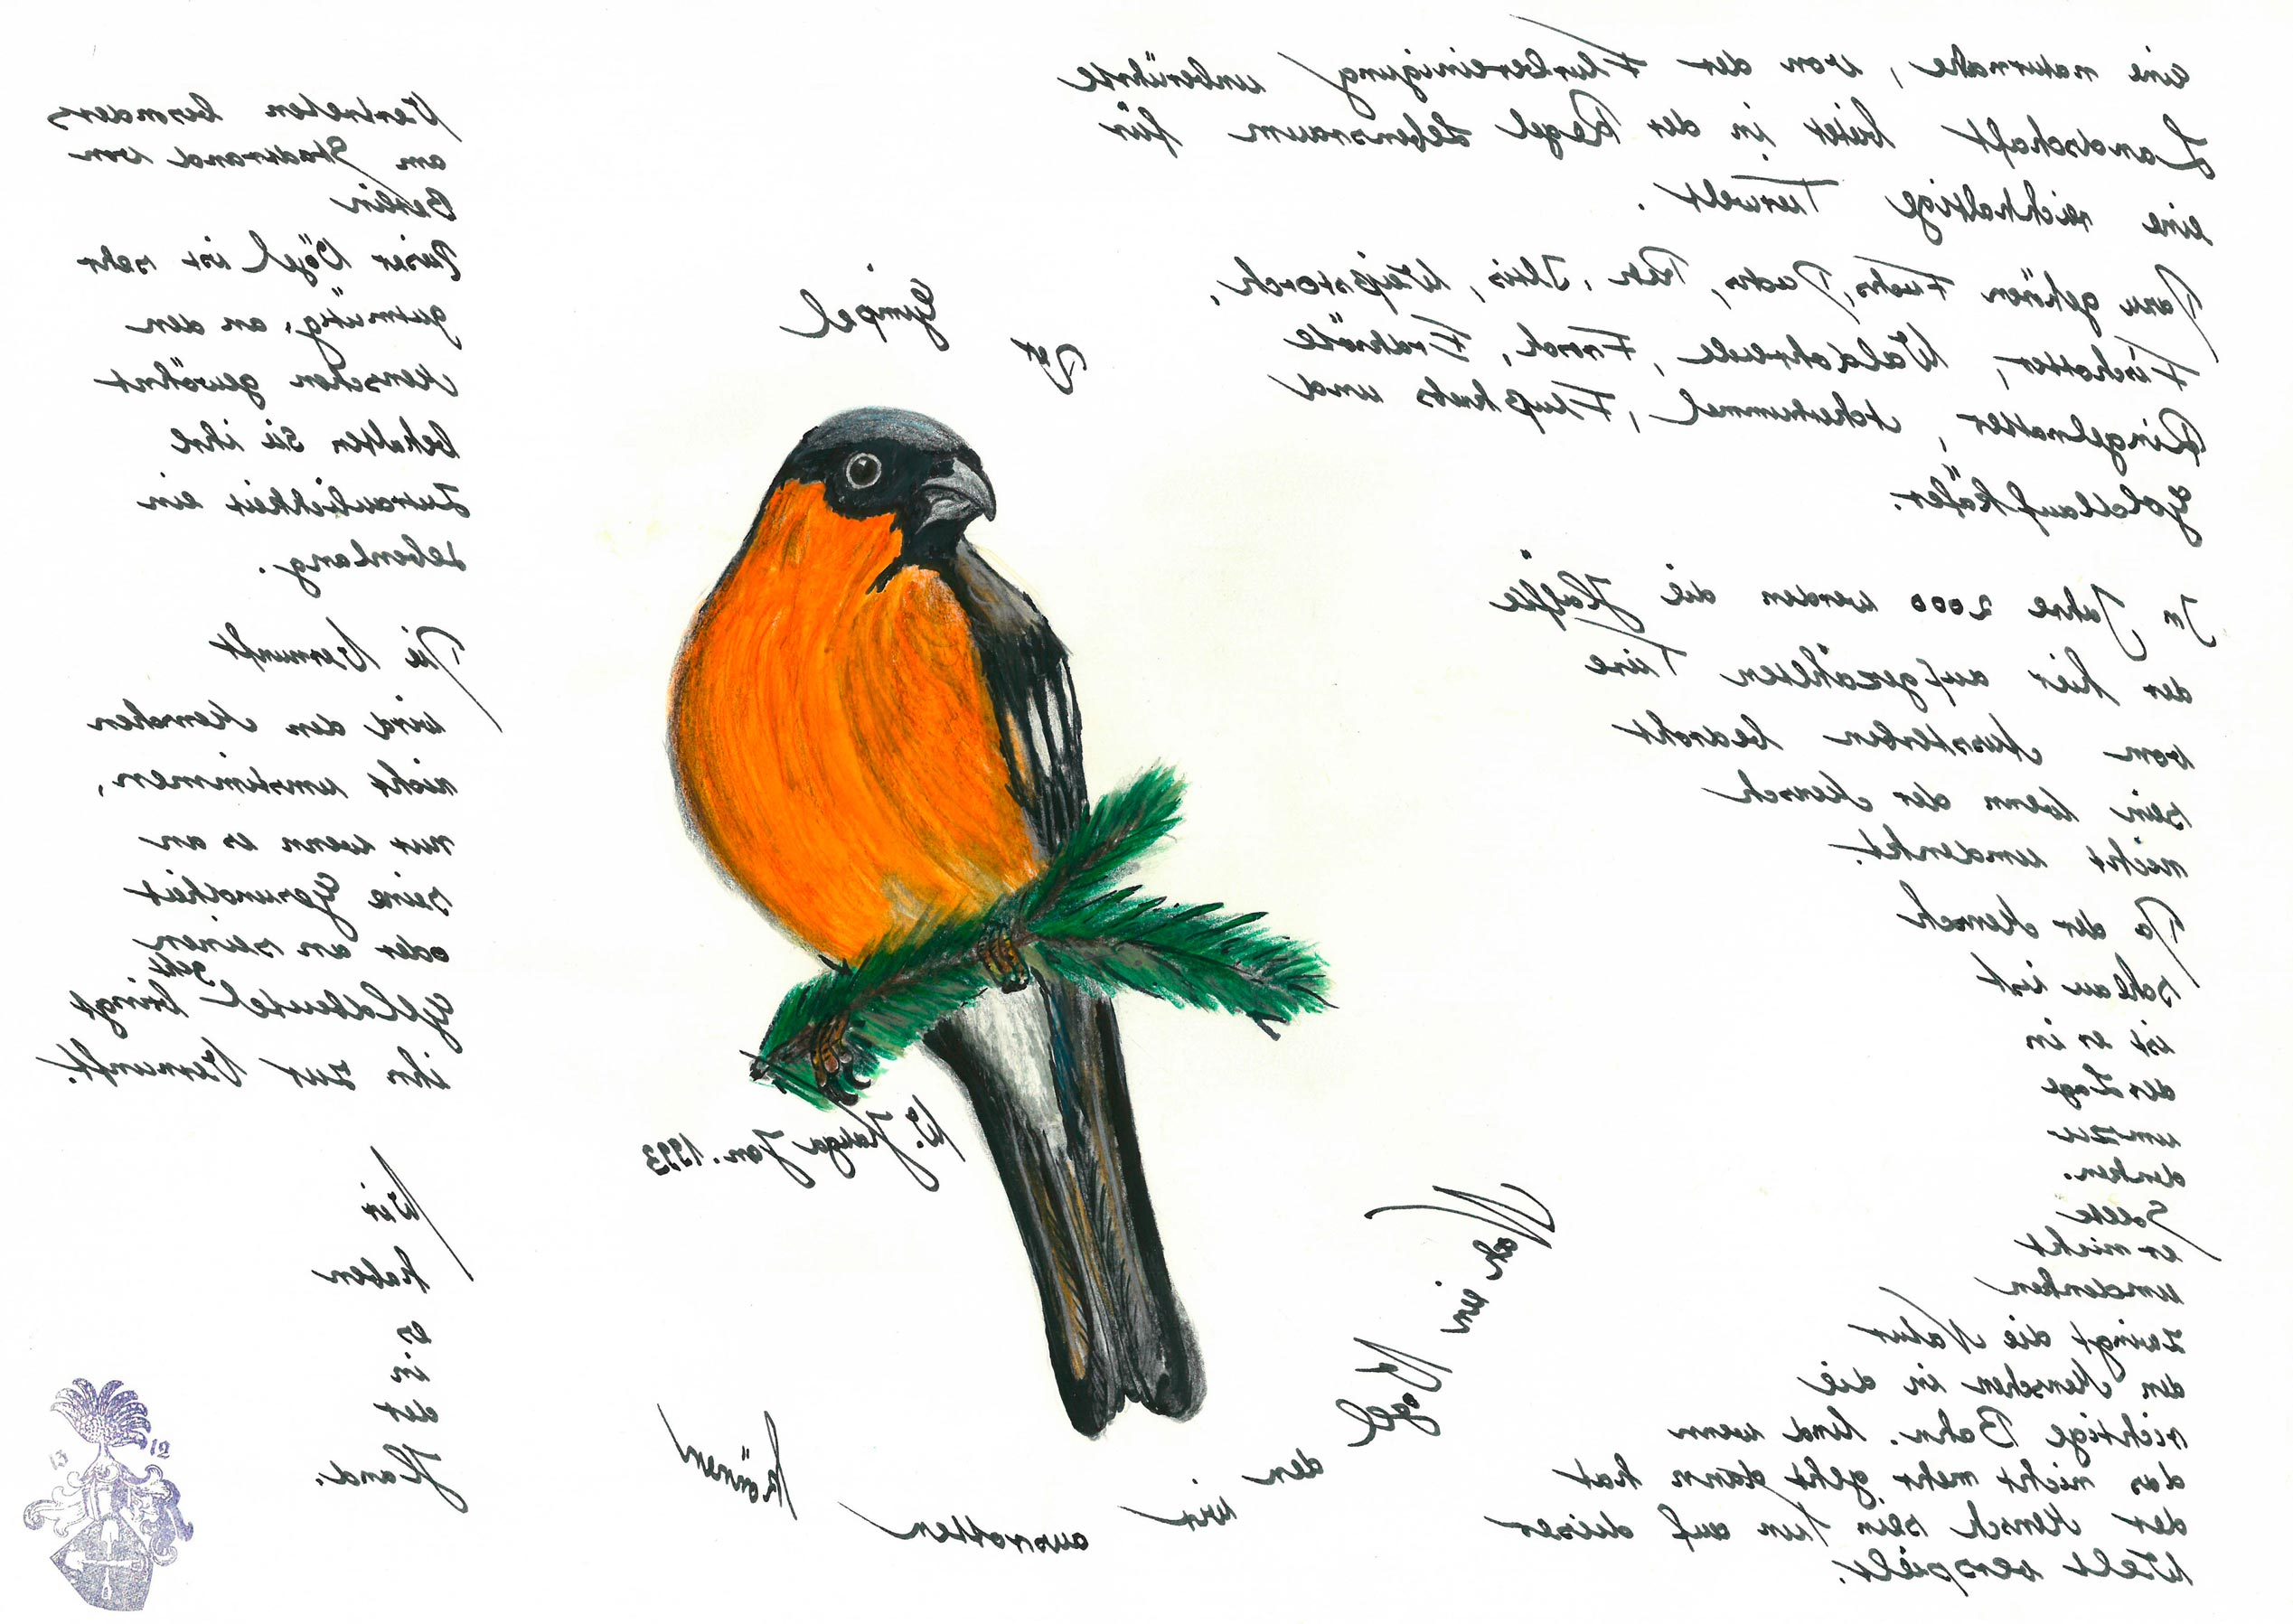 eine naturnahe, von der Flurbereinigung unberührte
Landschaft bietet in der Regel Lebensraum für
eine reichhaltige Tierwelt.
Dazu gehören Fuchs, Dachs, Reh, Iltis, Weißstorch,
Fischotter, Waldohreule, Frosch, Erdkröte
Ringelnatter, Ackerhummel, Flußkrebs und
Goldlaufkäfer.
In Jahre 2000 werden die Hälfte
der hier aufgezählten Tiere
vom Aussterben bedroht
sein wenn der Mensch
nicht umdenkt.
Da der Mensch
schlau ist
ist er in
der Lage
umzu
denken.
Sollte
er nicht
umdenken
zwingt die Natur
den Menschen in die
richtige Bahn. Und wenn
das nicht mehr geht dann hat
der Mensch sein tun auf dieser
Welt verspielt.
Der Gimpel
W. Jauga Jan. 1993
Noch ein Vogel den wir ausrotten können
Vertreten besonders
am Stadtrand von
Berlin
Dieser Vögel ist sehr
gutmütig, an den
Menschen gewöhnt
behalten Sie ihre
Zutraulichkeit ein
Lebenlang.
Die Vernunft
wird den Menschen
nicht umstimmen,
nur wenn es an
seine Gesundheit
oder an seinen
Geldbeutel geht bringt
ihn zur Vernunft.
Wir
haben
es
in
der
Hand.
13 12